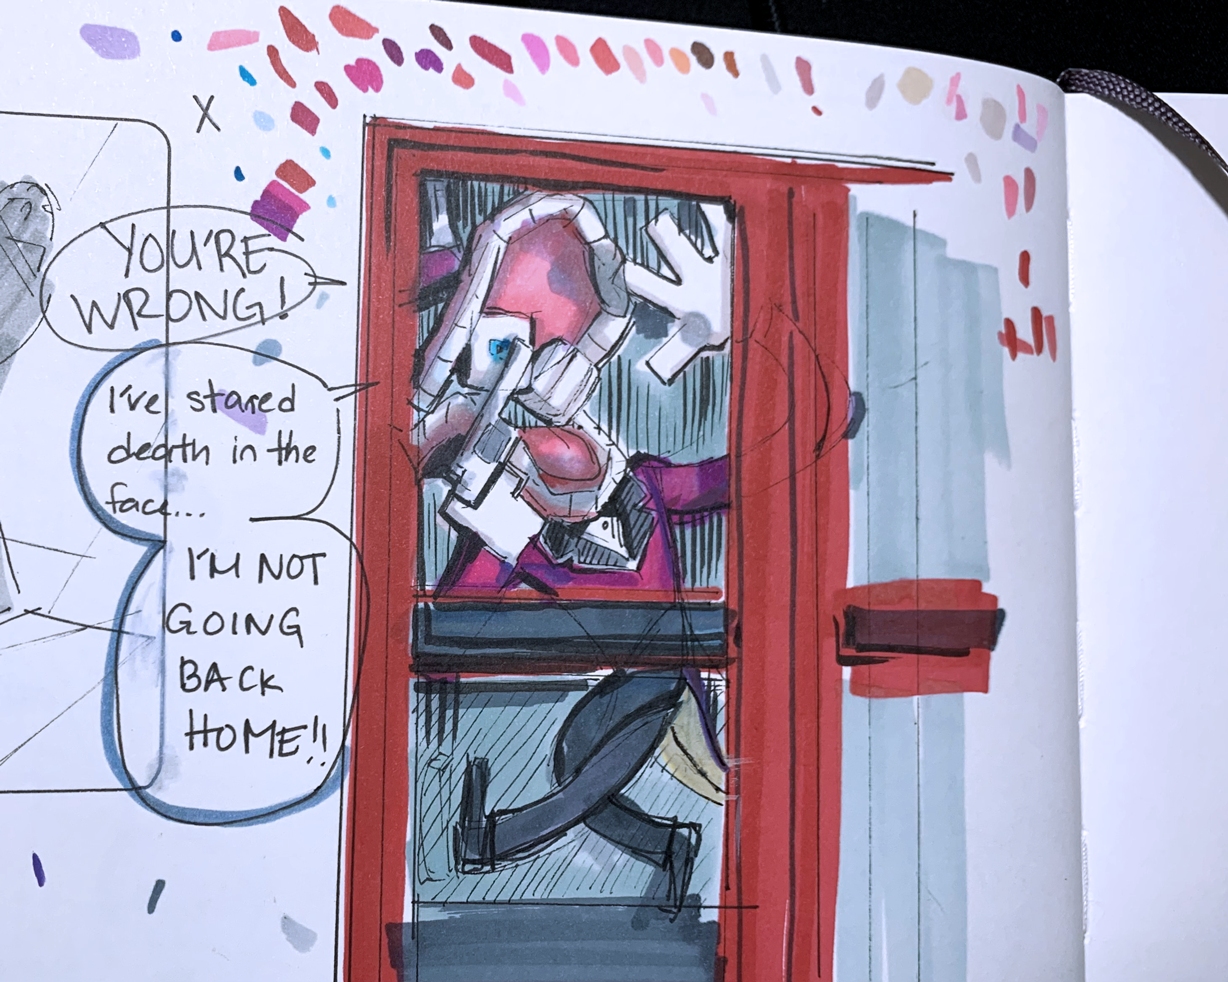 X
YOU'RE
WRONG!
I've stared
death in the
face...
I'M NOT
GOING
BACK
HOME!!